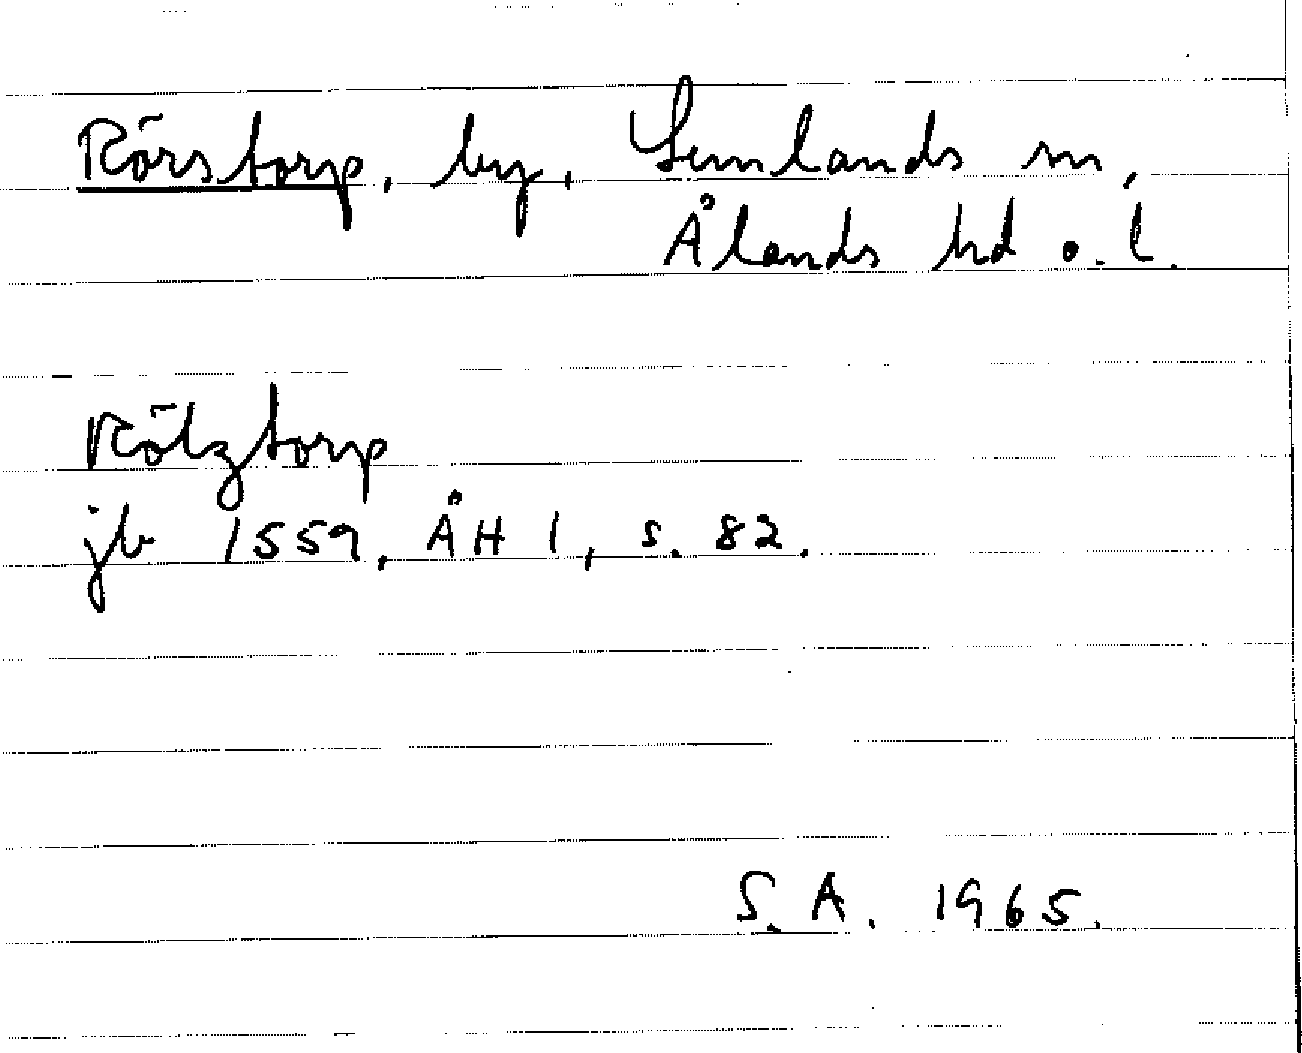 Rörstorp, by, Lemlands sn,
Ålands hd o. l.
Rölztorp
jb 1559, ÅH 1, s. 82.
S. A. 1965.